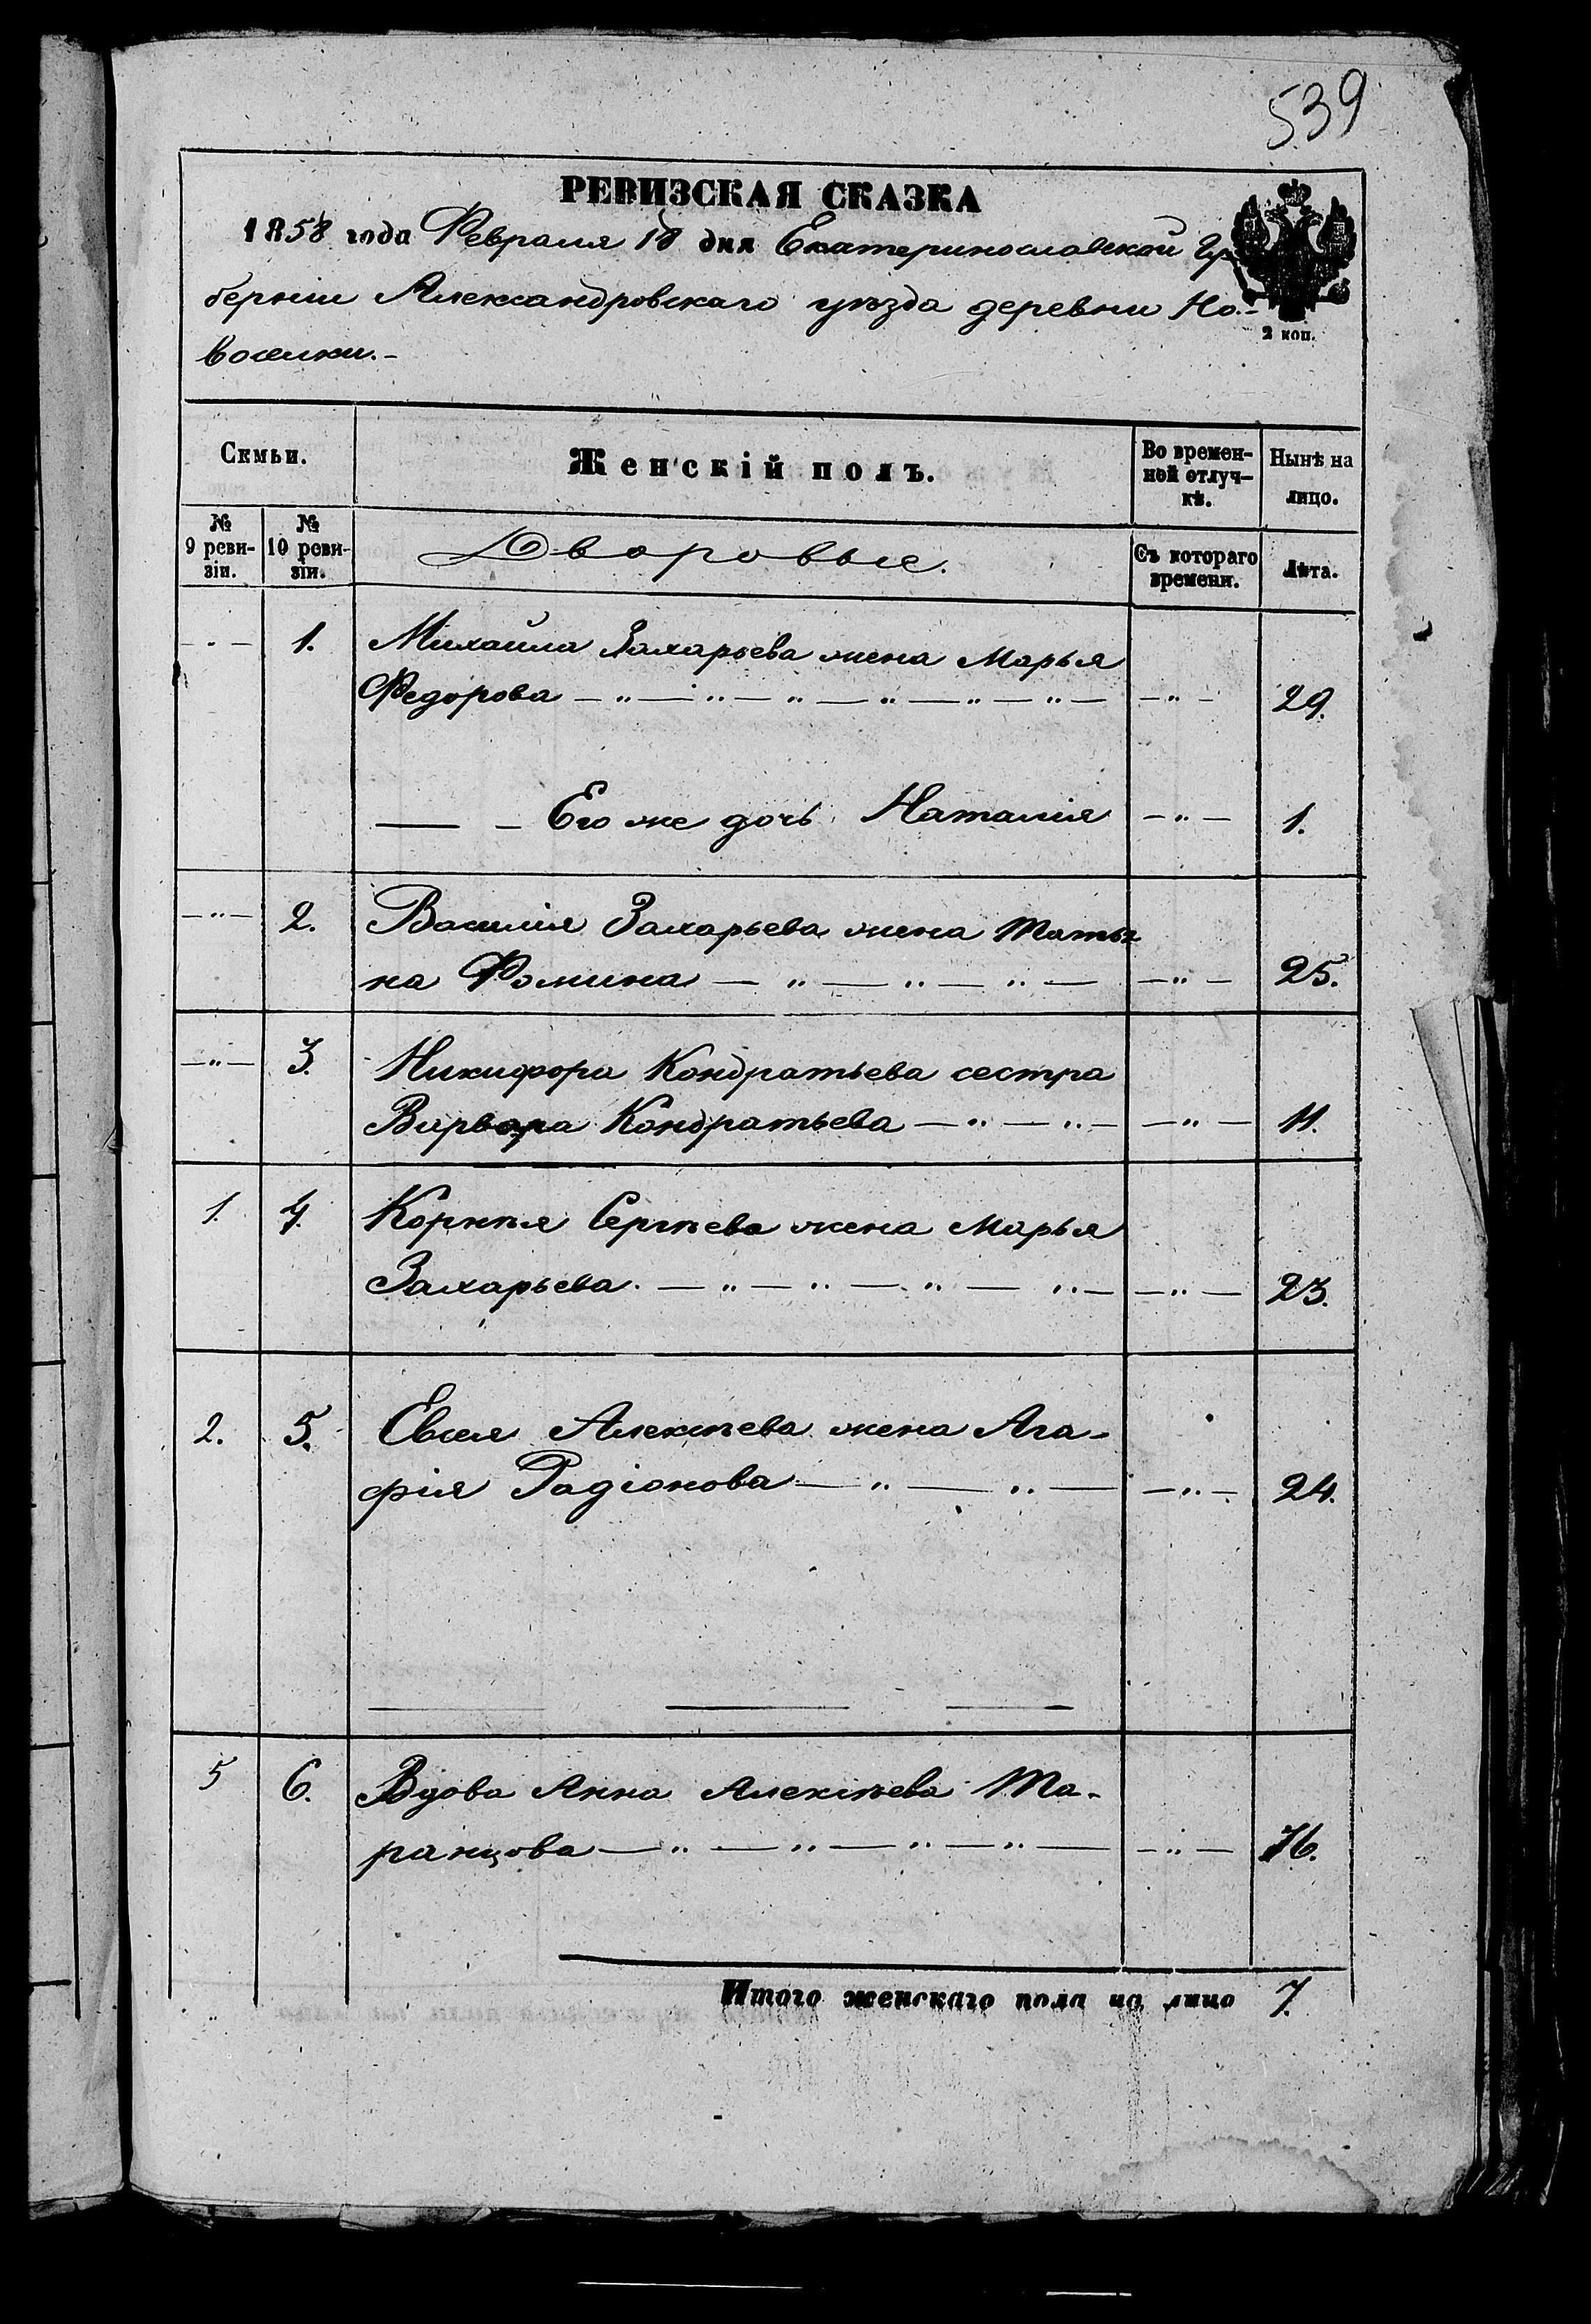 539
РЕВИЗСКАЯ СКАЗКА
1858 года Февраля 18 дня Екатеринославской Гу-
берніи Александровскаго уѣзда деревни Но-
воселки.-
2 коп.
Семьи. Женскій полъ. Во времен- Нынѣ на
ной отлуч- лицо.
кѣ.
№ №
9 реви- 10 реви- Дворовые. Съ котораго Лѣта.
зіи. зіи. времени.
- " - 1. Михайла Захарьева жена Марья
Федорова — " — " — " — " — " — " — - " - 29.
— - Его же дочь Наталія - " - 1.
- " - 2. Василія Захарьева жена Татья
на Фомина — " — " — " — - " - 25.
- " - 3. Никифора Кондратьева сестра
Варвара Кондратьева — " — " - - " - 11.
1. 4. Корнѣя Сергѣева жена Марья
Захарьева. — " — " — " — " - - " - 23.
2. 5. Евсея Алексѣева жена Ага-
фія Радіонова — " — " — - " - 24.
5 6. Вдова Анна Алексѣева Та-
ранцова — " — " — " — " — - " - 76.
Итого женскаго пола на лицо 7.